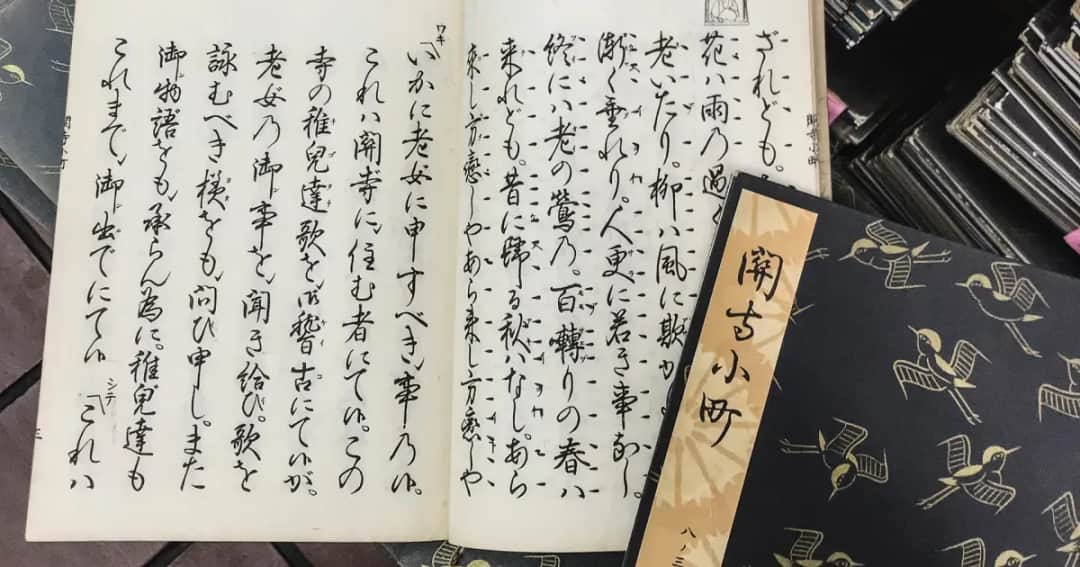 ざれども。
花ハ雨乃過
老いたり。柳ハ風に欺か
漸く垂れり。人更に若き事なし。
終にハ老の鶯乃。百囀りの春ハ
来れども。昔に歸る秋ハなし。あら
来し方戀しやあら来し方戀しや
ワキ いかに老女に申すべき事乃候。
これハ關寺に、住む者にて候。この
寺の稚兒達歌を、御稽古にて候が。
老女乃御事を、聞き給ひ。歌を
詠むべき様をも、問ひ申し。また
御物語をも、承らん為に。稚兒達も
これまで、御出でにて候 シテ これハ
三
關寺小町
八ノ三